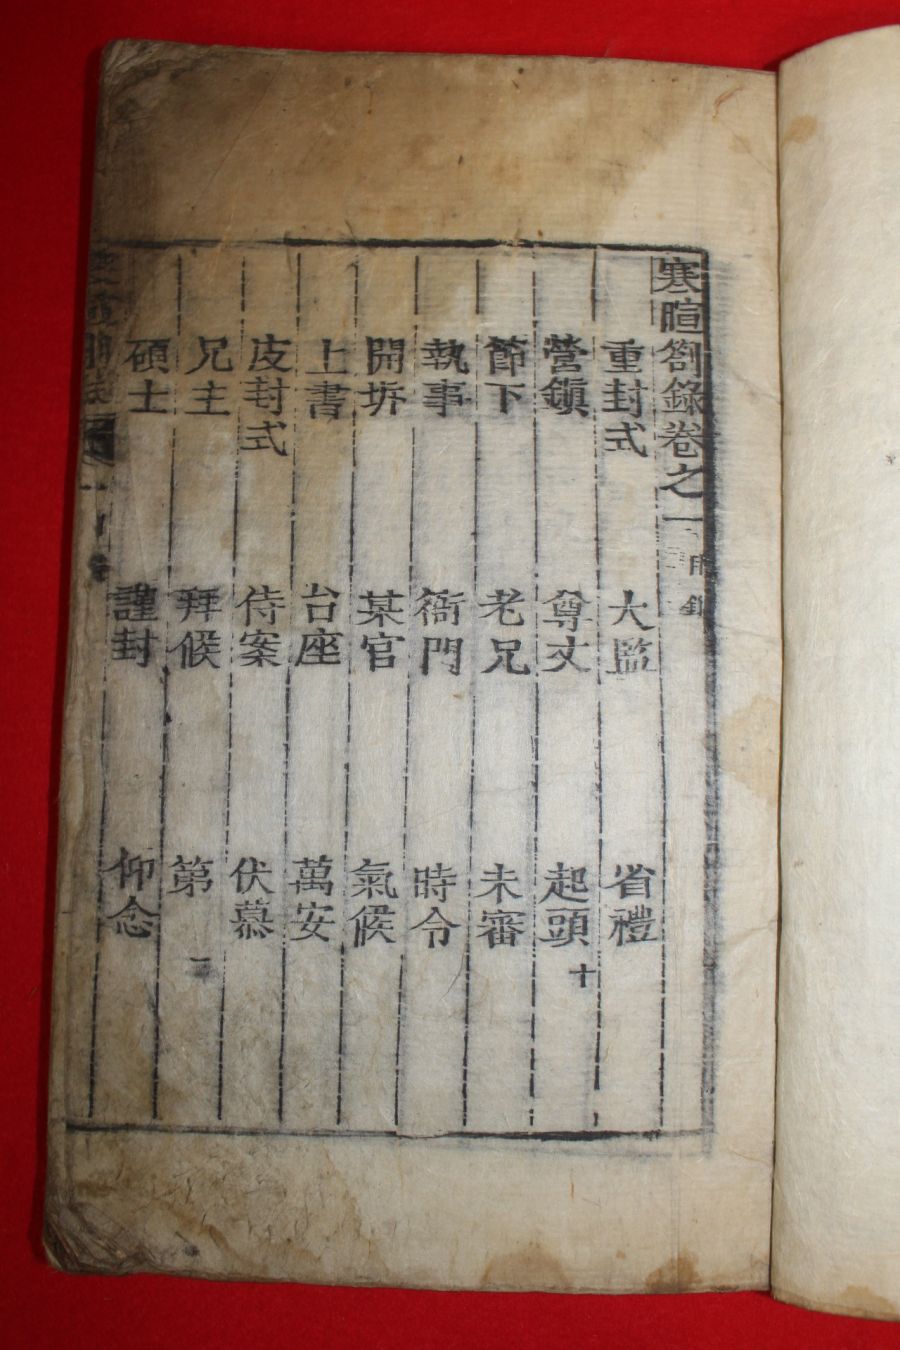 寒暄劄錄卷之一
重封式 大監 省禮
營鎭 尊丈 起頭 十
節下 老兄 未審
執事 衙門 時令
開坼 某官 氣候
上書 台座 萬安
皮封式 侍案 伏慕
兄主 拜候 第 一
碩士 謹封 仰念